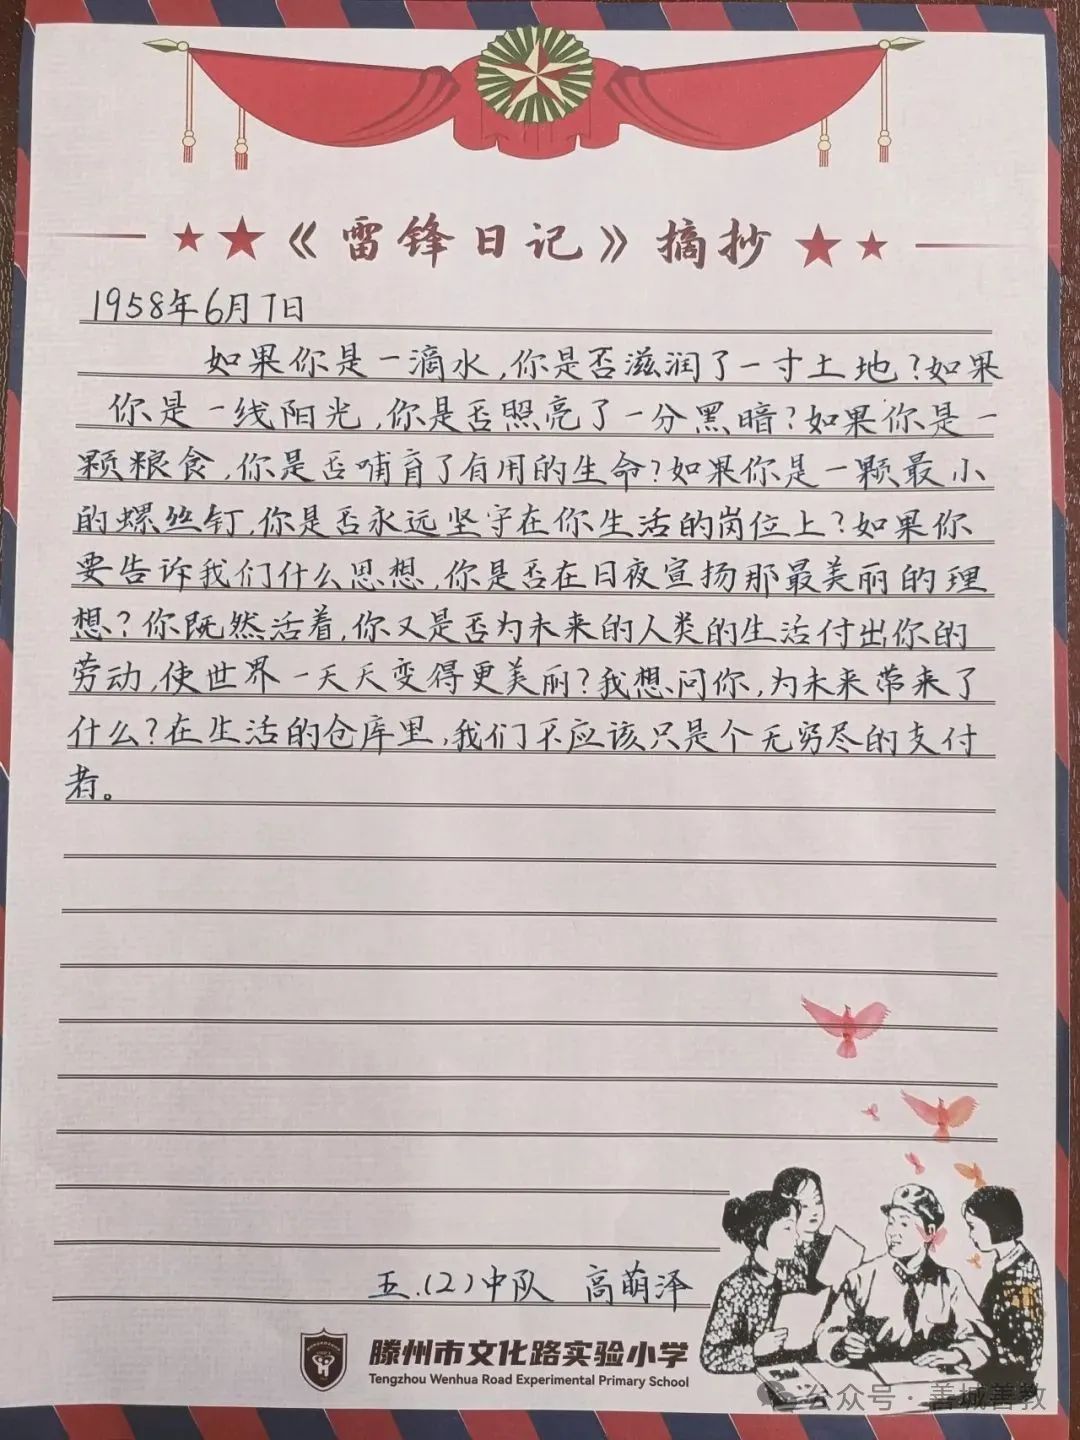 《雷锋日记》摘抄
1958年6月7日
如果你是一滴水,你是否滋润了一寸土地?如果
你是一线阳光,你是否照亮了一分黑暗?如果你是一
颗粮食,你是否哺育了有用的生命?如果你是一颗最小
的螺丝钉,你是否永远坚守在你生活的岗位上?如果你
要告诉我们什么思想,你是否在日夜宣扬那最美丽的理
想?你既然活着,你又是否为未来的人类的生活付出你的
劳动,使世界一天天变得更美丽?我想问你,为未来带来了
什么?在生活的仓库里,我们不应该只是个无穷尽的支付
者。
五.(2)中队 高萌泽
滕州市文化路实验小学
Tengzhou Wenhua Road Experimental Primary School
公众号·善城善教